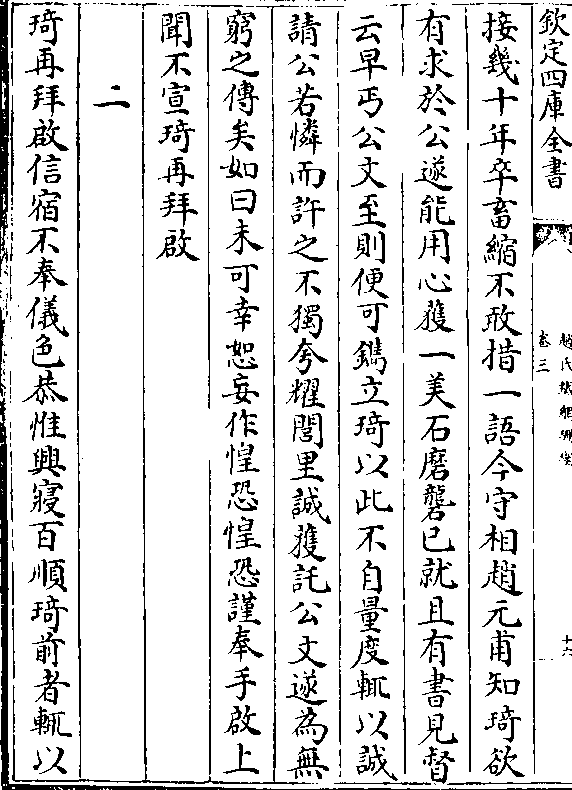 欽定四庫全書
趙氏鐵網珊瑚
卷三
十六
接幾十年卒畜縮不敢措一語今守相趙元甫知琦欲
有求於公遂能用心獲一美石磨礱已就且有書見督
云早丐公文至則便可鐫立琦以此不自量度輒以誠
請公若憐而許之不獨夸耀閭里誠獲託公文遂為無
窮之傳矣如曰未可幸恕妄作惶恐惶恐謹奉手啟上
聞不宣琦再拜啟
二
琦再拜啟信宿不奉儀色恭惟興寢百順琦前者輒以